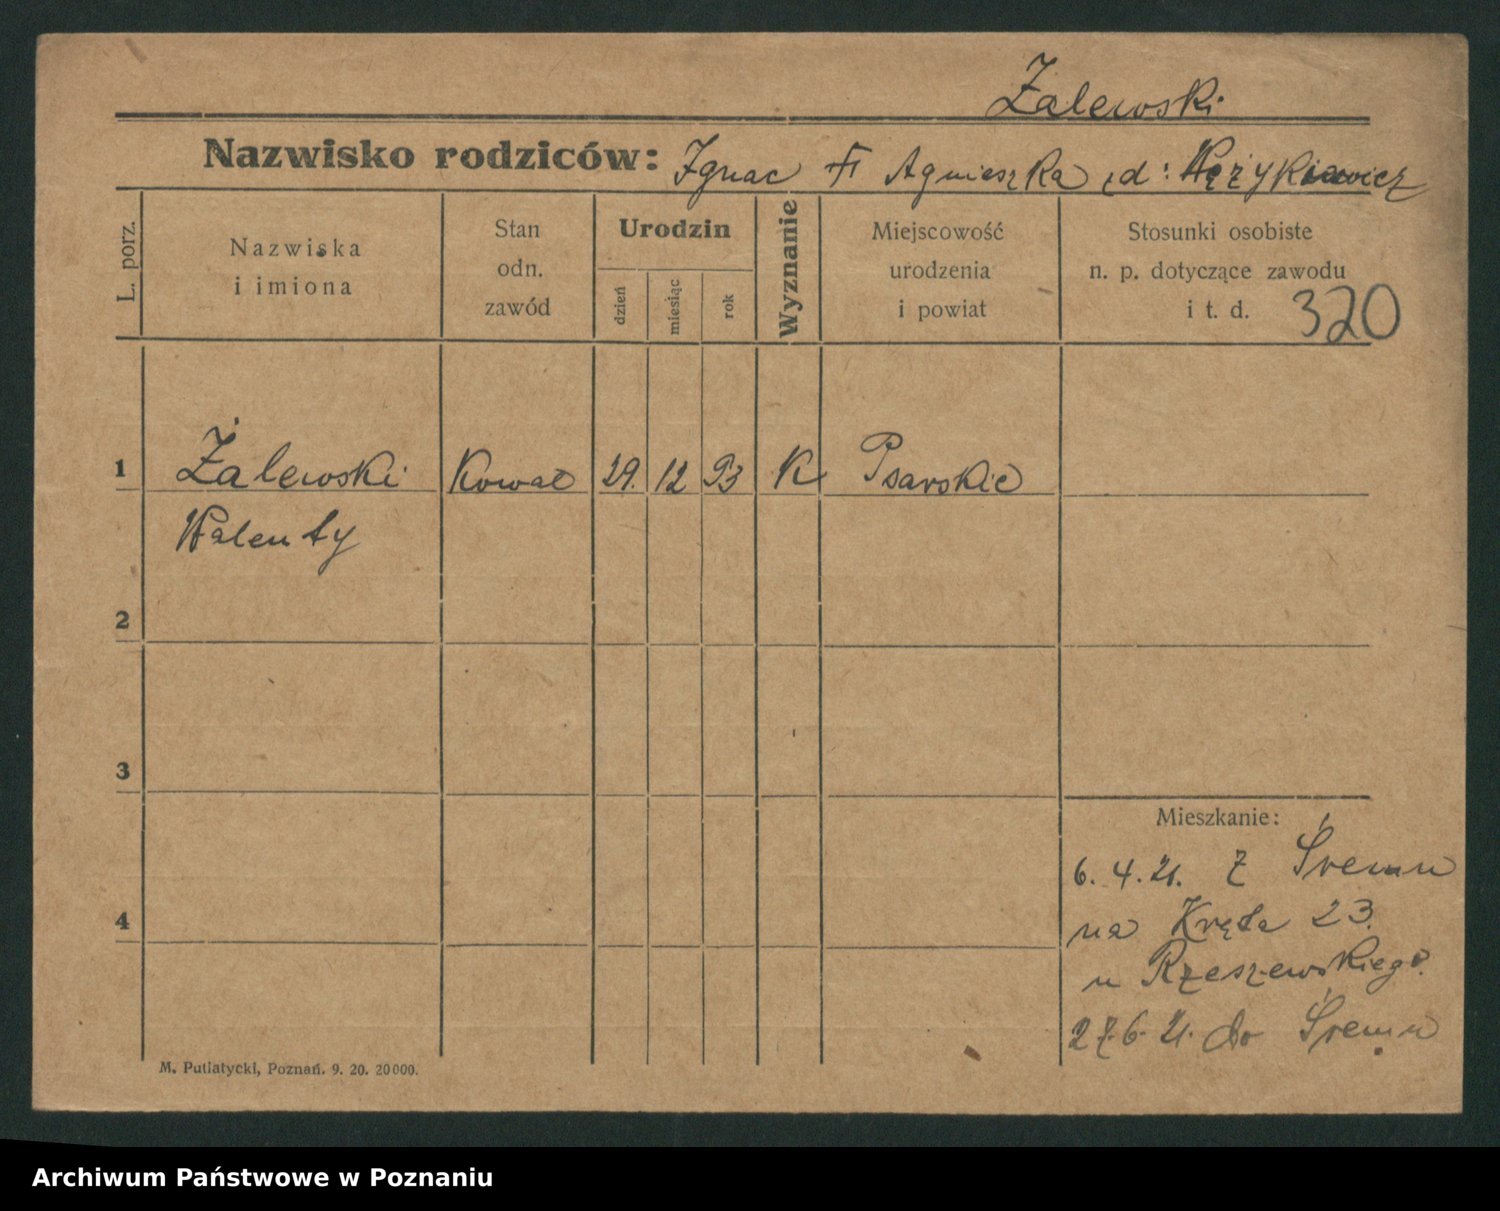 Żalewski
Nazwisko rodziców: Ignac Agnieszka
L. porz.
Nazwiska
i imiona
Stan
odn.
zawód
Urodzin
dzień
miesiąc
rok
Wyznanie
Miejscowość
urodzenia
i powiat
Stosunki osobiste
n. p. dotyczące zawodu
i t. d.
320
1 Żalewski Kowal 29. 12 93 K Psarskie
Walenty
2
3
4
Mieszkanie:
6. 4. 21. z Śremu
na Kręta 23.
u Rzeszewskiego.
27. 6. 21. do Śremu
M. Putiatycki, Poznań. 9. 20. 20000.
Archiwum Państwowe w Poznaniu